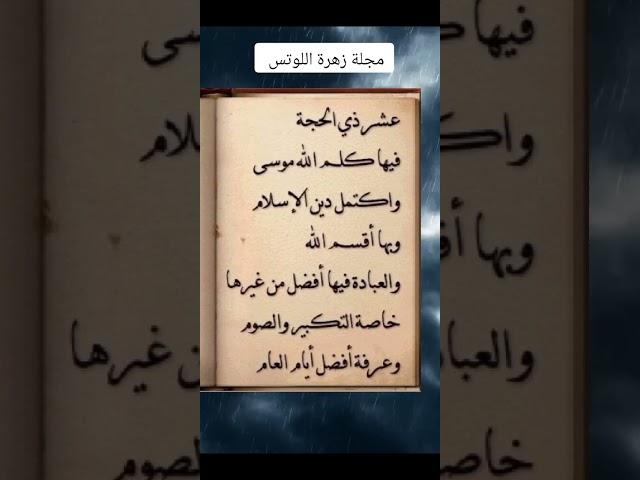 مجلة زهرة اللوتس
عشر ذي الحجة
فيها كلم الله موسى
واكتمل دين الإسلام
وبها أقسم الله
والعبادة فيها أفضل من غيرها
خاصة التكبير والصوم
وعرفة أفضل أيام العام